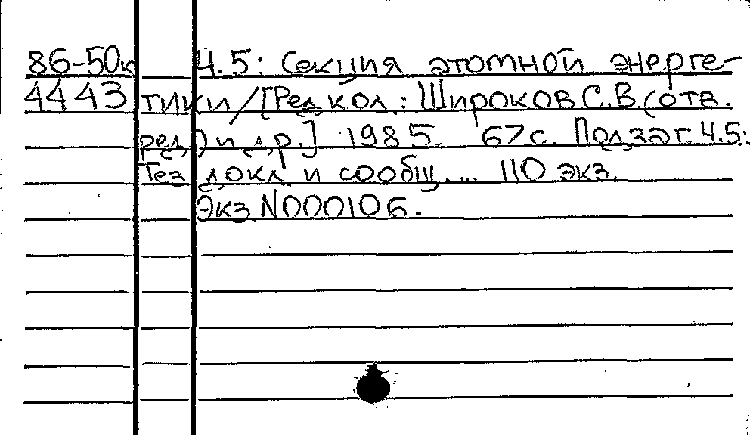 86-50к Ч.5: Секция атомной энерге-
4443 тики/[Редкол.: Широков С.В.(отв.
ред.) и др.] 1985. 67с. Под заг. Ч.5:
Тез докл и сообщ.... 110 экз.
Экз N000106.